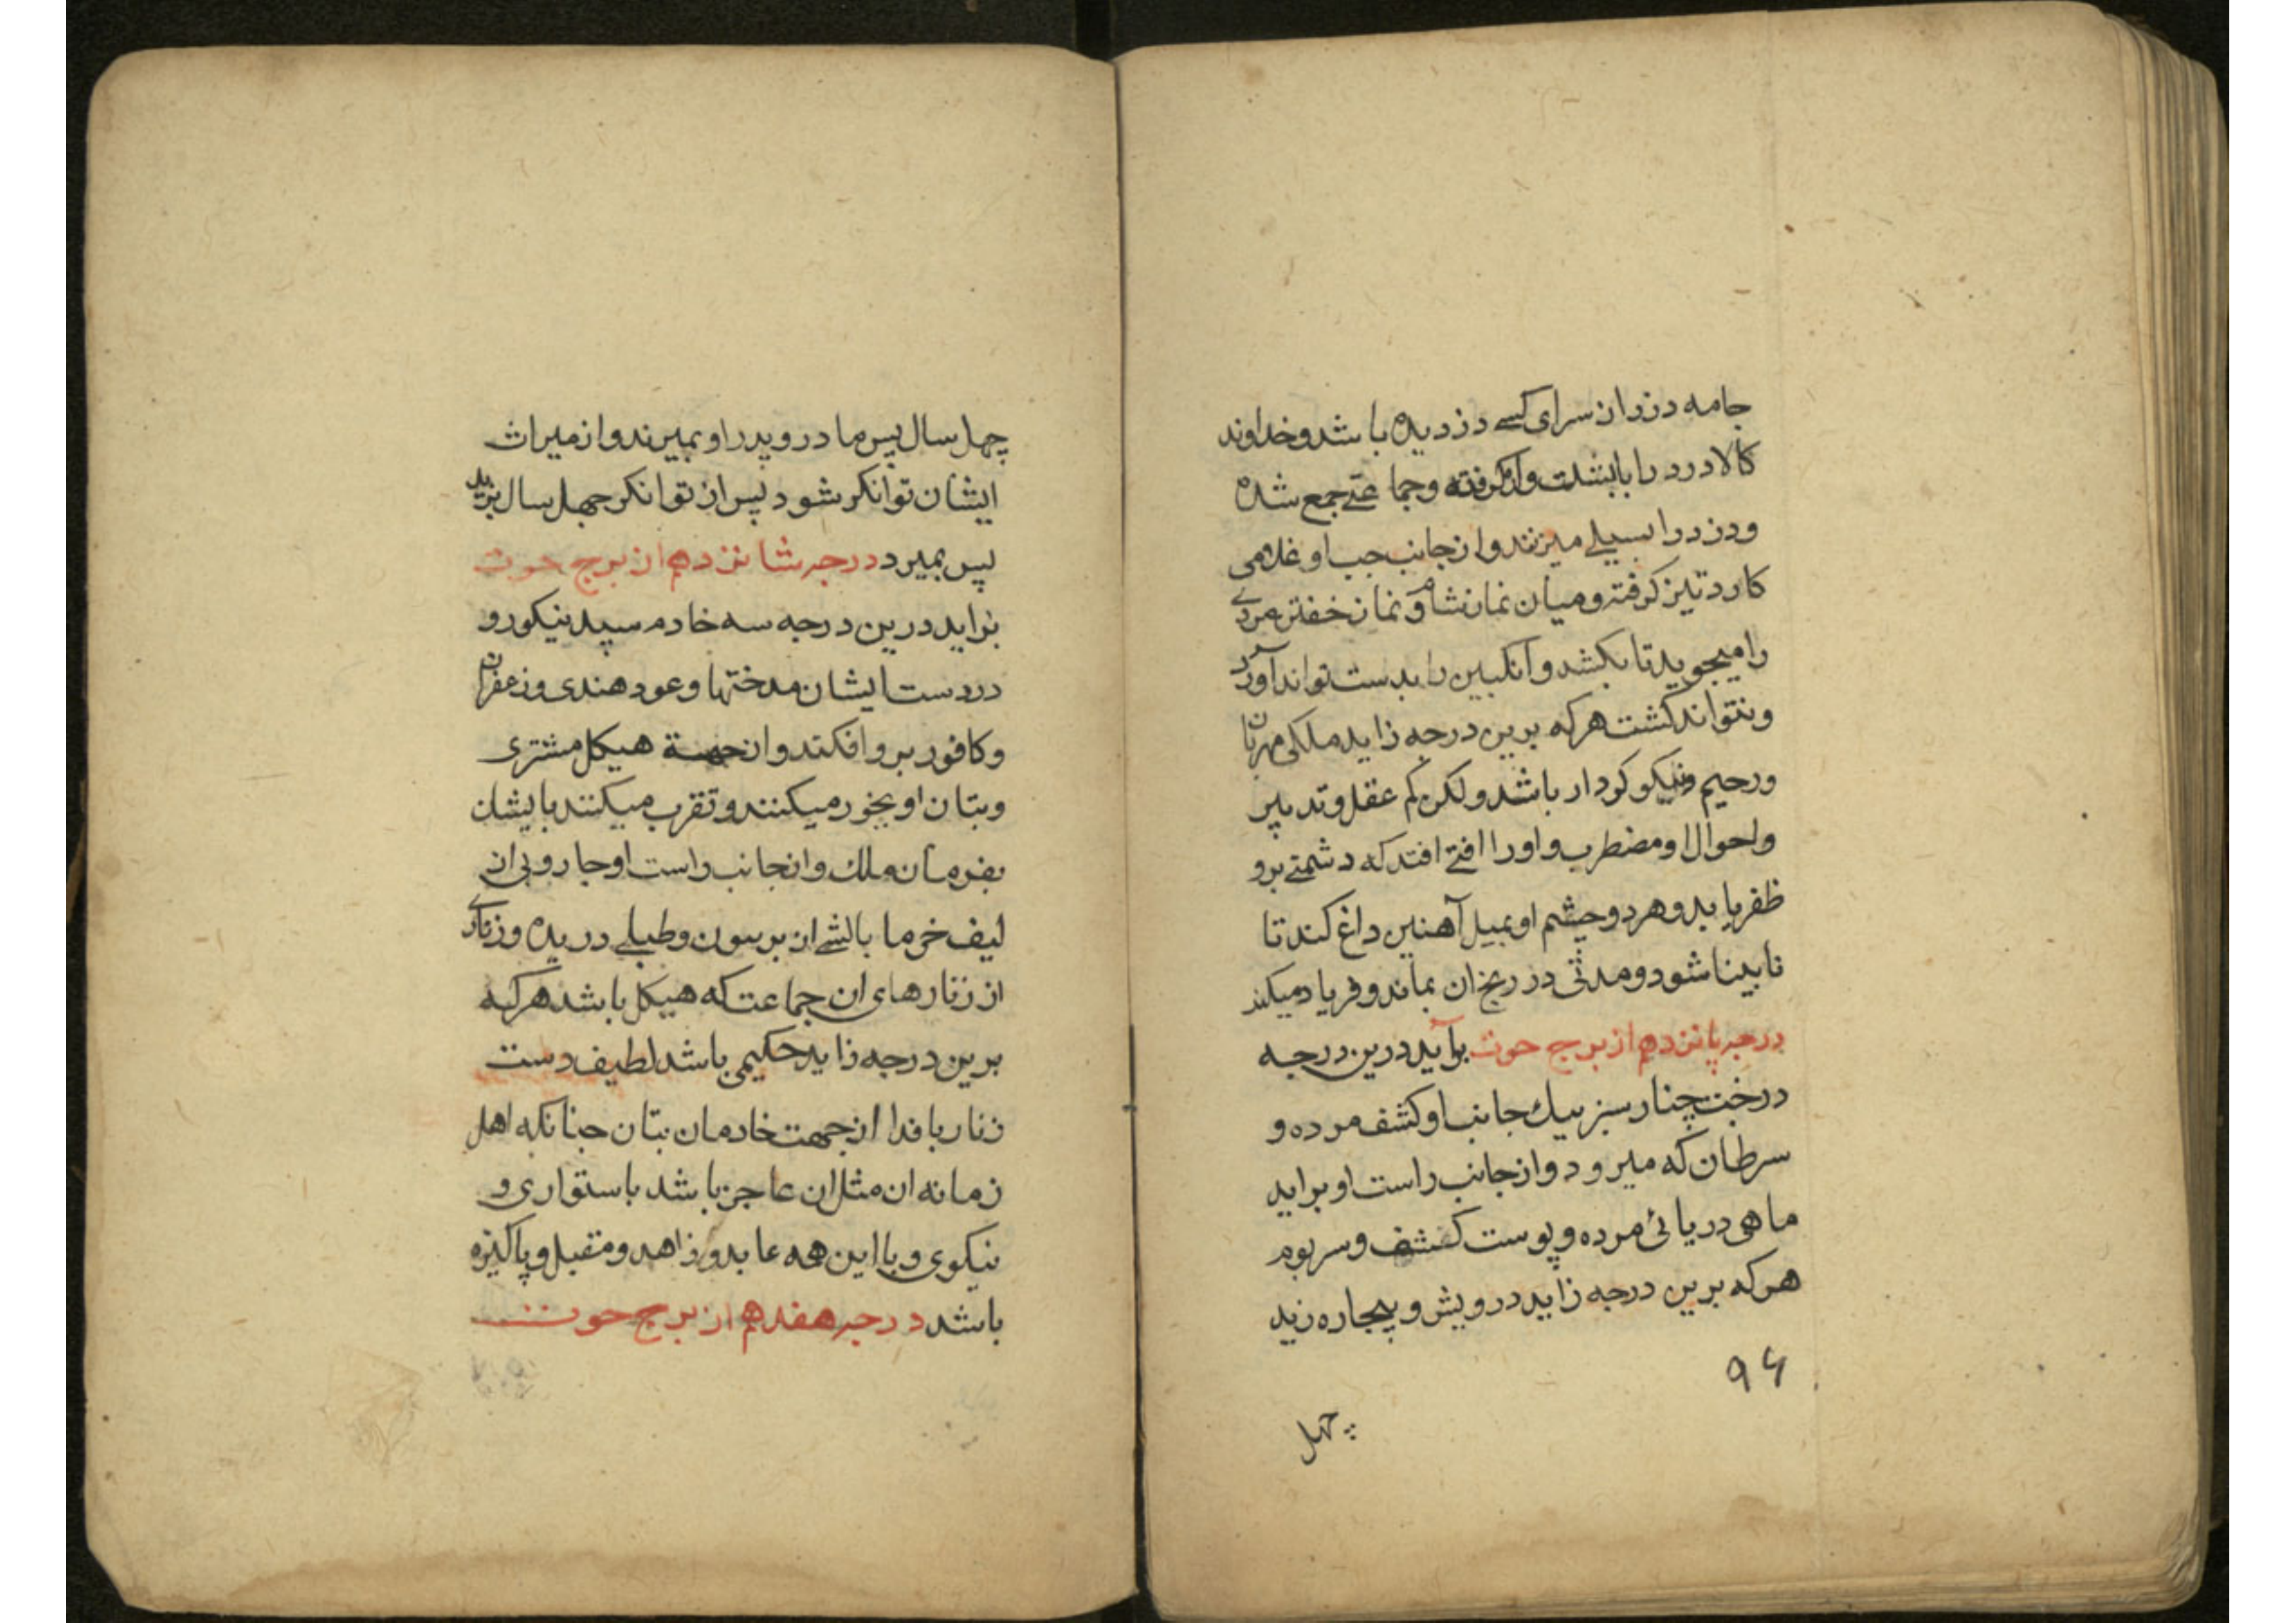 جامه دزد از سرای کسے دزدیده باشد و خداوند
کالا دزد را بابشلت واز گرفته وجماعتے جمع شده
ودزد را بسیلے میزنند واز جانب جب او غلامی
کارد تیز کرفته ومیان نماز شام ونماز خفتن مردے
را میجوید تا بکشد وانکبین را بدست تواند آورد
ونتواند کشت هرکه برین درجه زاید ملکی مهربان
ورحیم ونیکو کردار باشد ولکن کم عقل وتدبیر
واحوال او مضطرب واورا افتے افتد که دشمنے برو
ظفر یابد وهردو چشم او بمیل آهنین داغ کند تا
نابینا شود ومدتی در رنج ان بماند وفریاد میکند
درجه پانزدهم از برج حوت برآید درین درجه
درخت چنار سبز بیك جانب او کشف مرده و
سرطان که میرود واز جانب راست او براید
ماهی دریائی مرده وپوست کشف وسر بوم
هرکه برین درجه زاید درویش وبیچاره زید
۹۶
چهل
چهل سال پس مادر وپدر او بمیرند واز میراث
ایشان توانکر شود پس از توانکر جهل سال بزید
پس بمیرد درجه شانزدهم از برج حوت
براید درین درجه سه خادم سپید نیکورو
در دست ایشان مدختها وعود هندی وزعفران
وکافور برو افکند واز جهة هیکل مشتری
وبتان او بخور میکنند وتقرب میکنند بایشان
بفرمان ملك واز جانب راست او جاروبی از
لیف خرما بالشے از بر سون وطبلے دریده وزنارے
از زنارهای ان جماعت که هیکل باشد هرکه
برین درجه زاید حکیمی باشد لطیف دست
زنار بافد از جهت خادمان بتان جنانکه اهل
زمانه از مثل ان عاجز باشد باستواری و
نیکوی وبا این همه عابد وزاهد ومقبل وپاکیزه
باشد درجه هفدهم از برج حوت